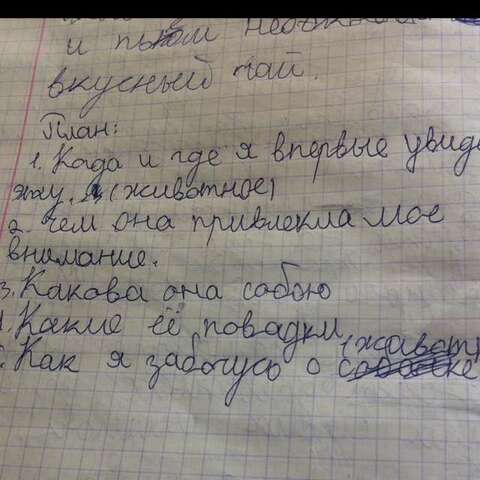 и пьём
вкусный чай.
План:
1. Када и где я впервые увиде
(животное)
2. Чем она привлекла мое
внимание.
3. Какова она собою
4. Какие её повадки
Как я забочусь о (животн